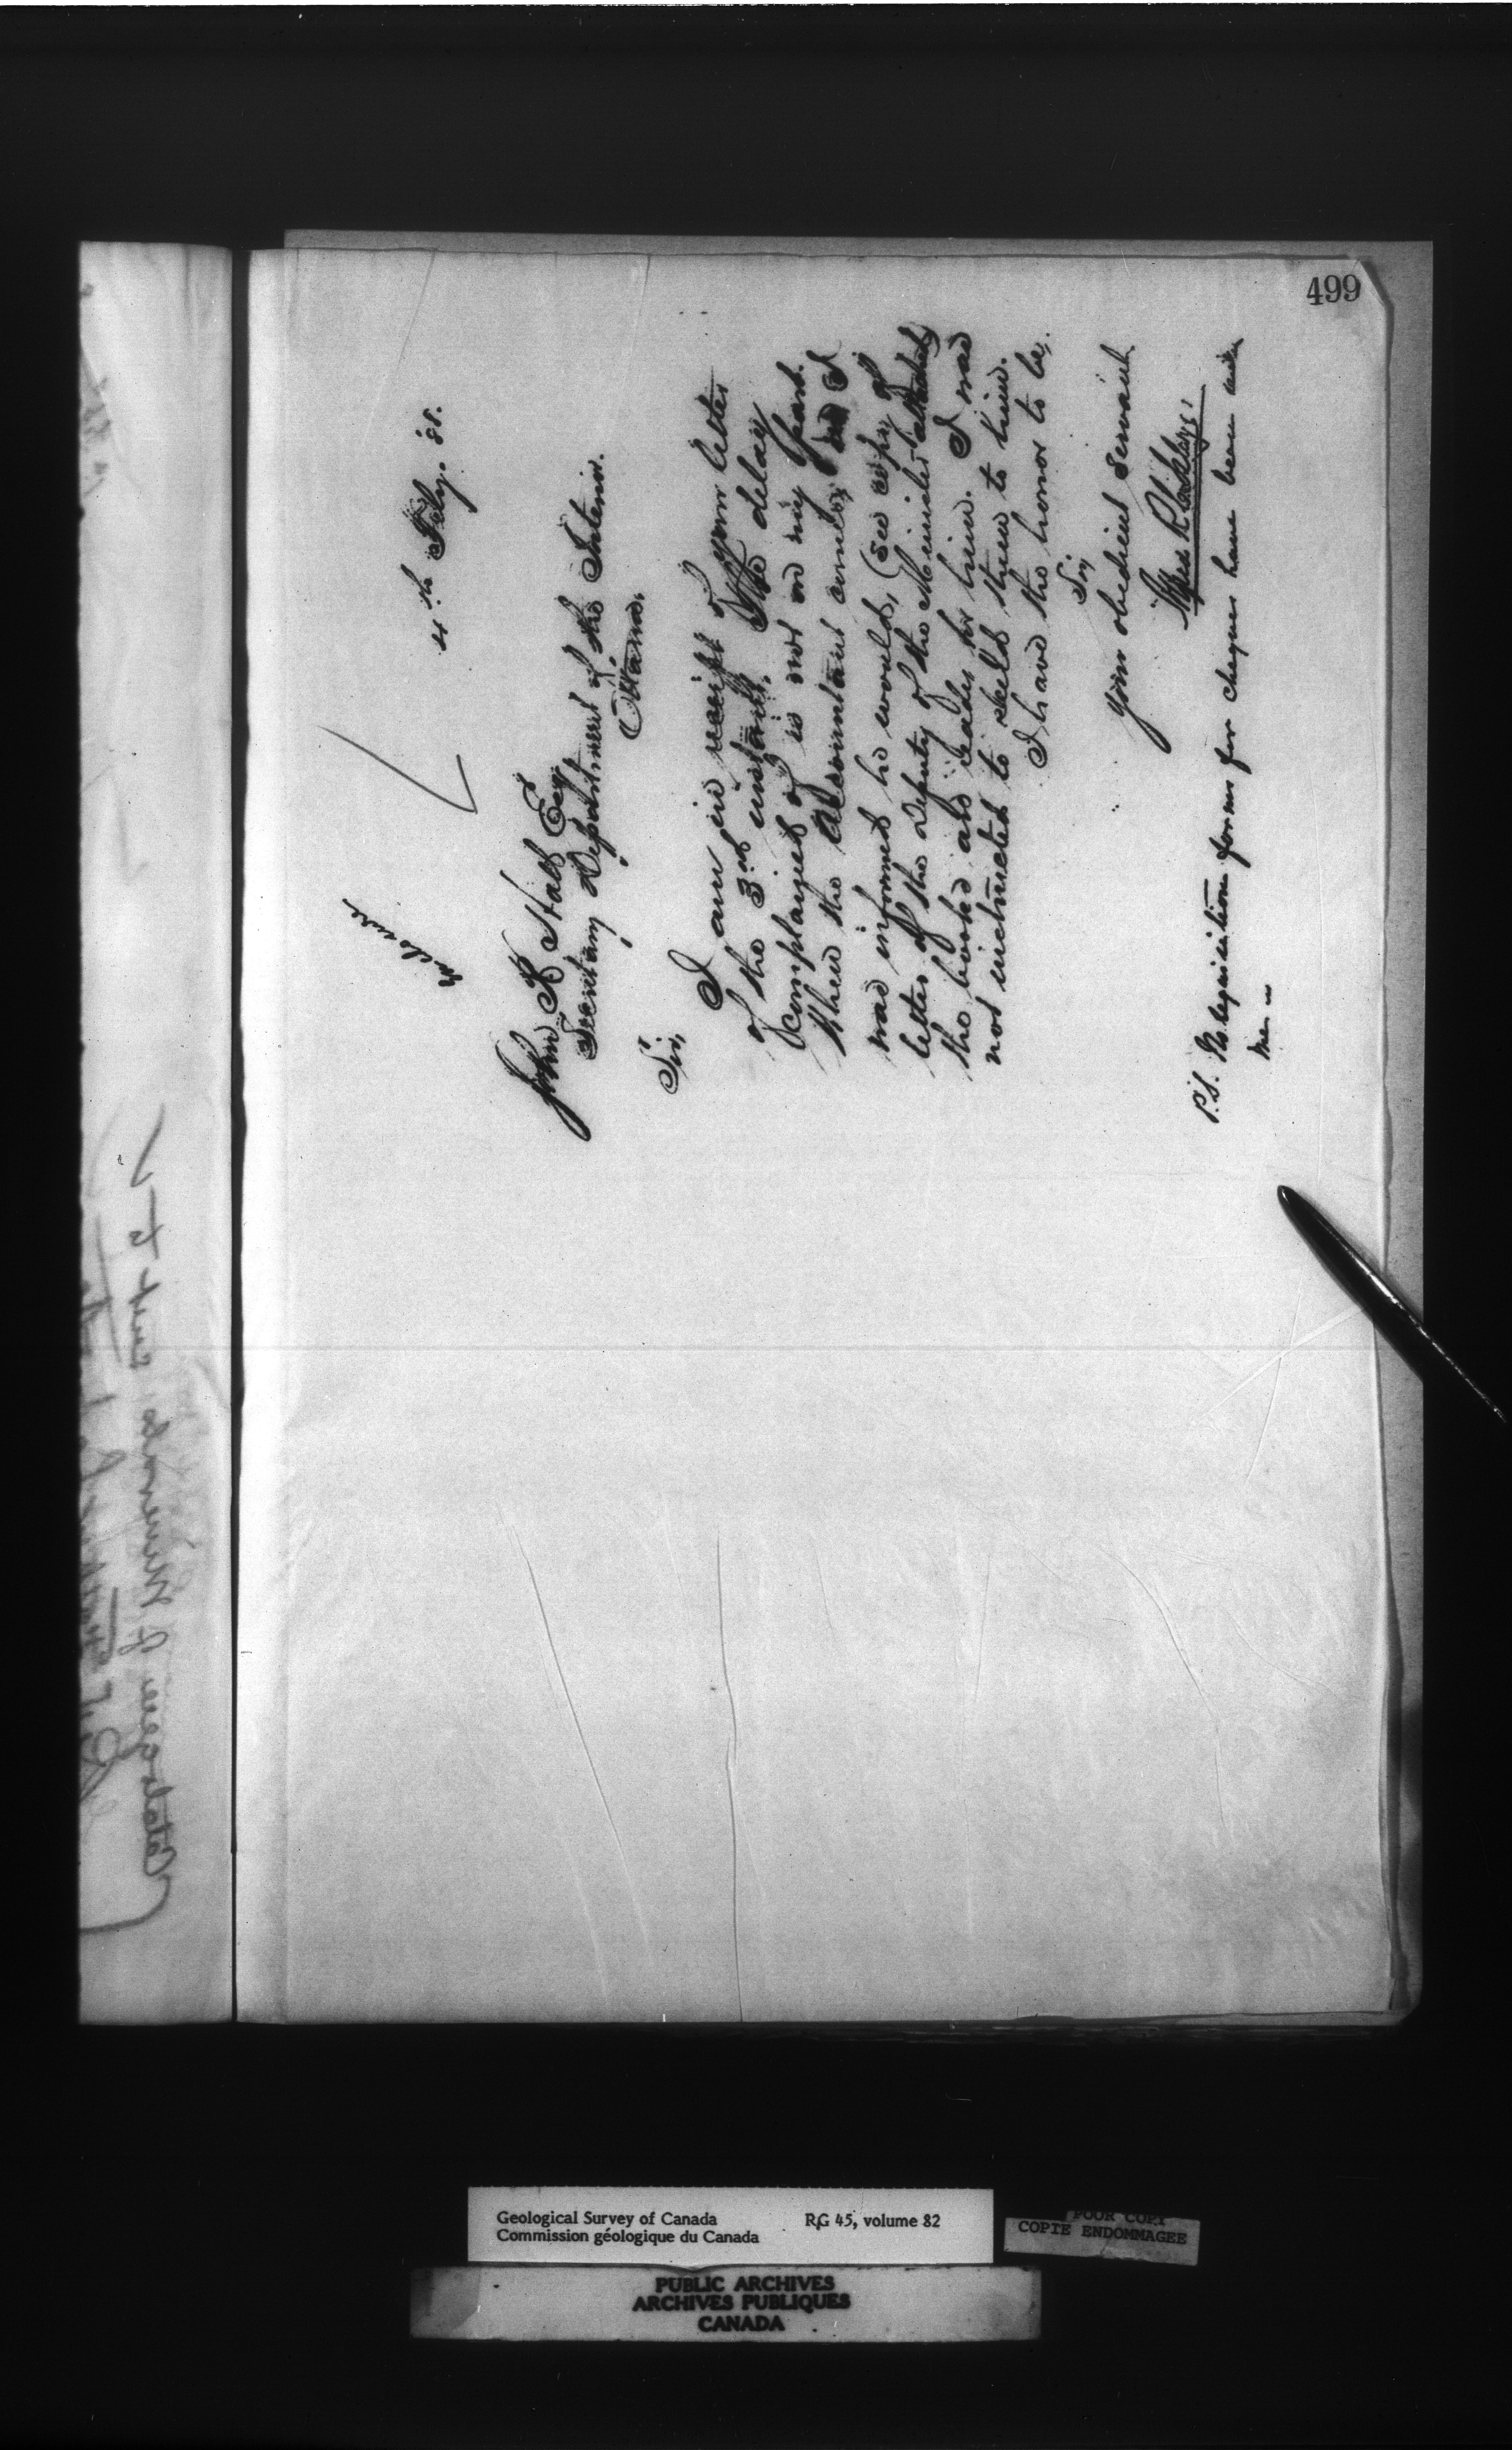 499
Enclosure
4th Feby. 88.
John R Hall Esq
Secretary Department of the Interior.
Ottawa.
Sir,
I am in receipt of your letter
of the 3rd instant. The delay
complained of is not on my part.
When the Accountant comes, as I
was informed he would, (see copy of
letter of the Deputy of the Minister attached)
the books are ready for him. I was
not instructed to send them to him.
I have the honor to be,
Sir
Your obedient Servant.
P.S. No requisition forms for cheques have been
Geological Survey of Canada RG 45, volume 82
Commission géologique du Canada
POOR COPY
COPIE ENDOMMAGEE
PUBLIC ARCHIVES
ARCHIVES PUBLIQUES
CANADA